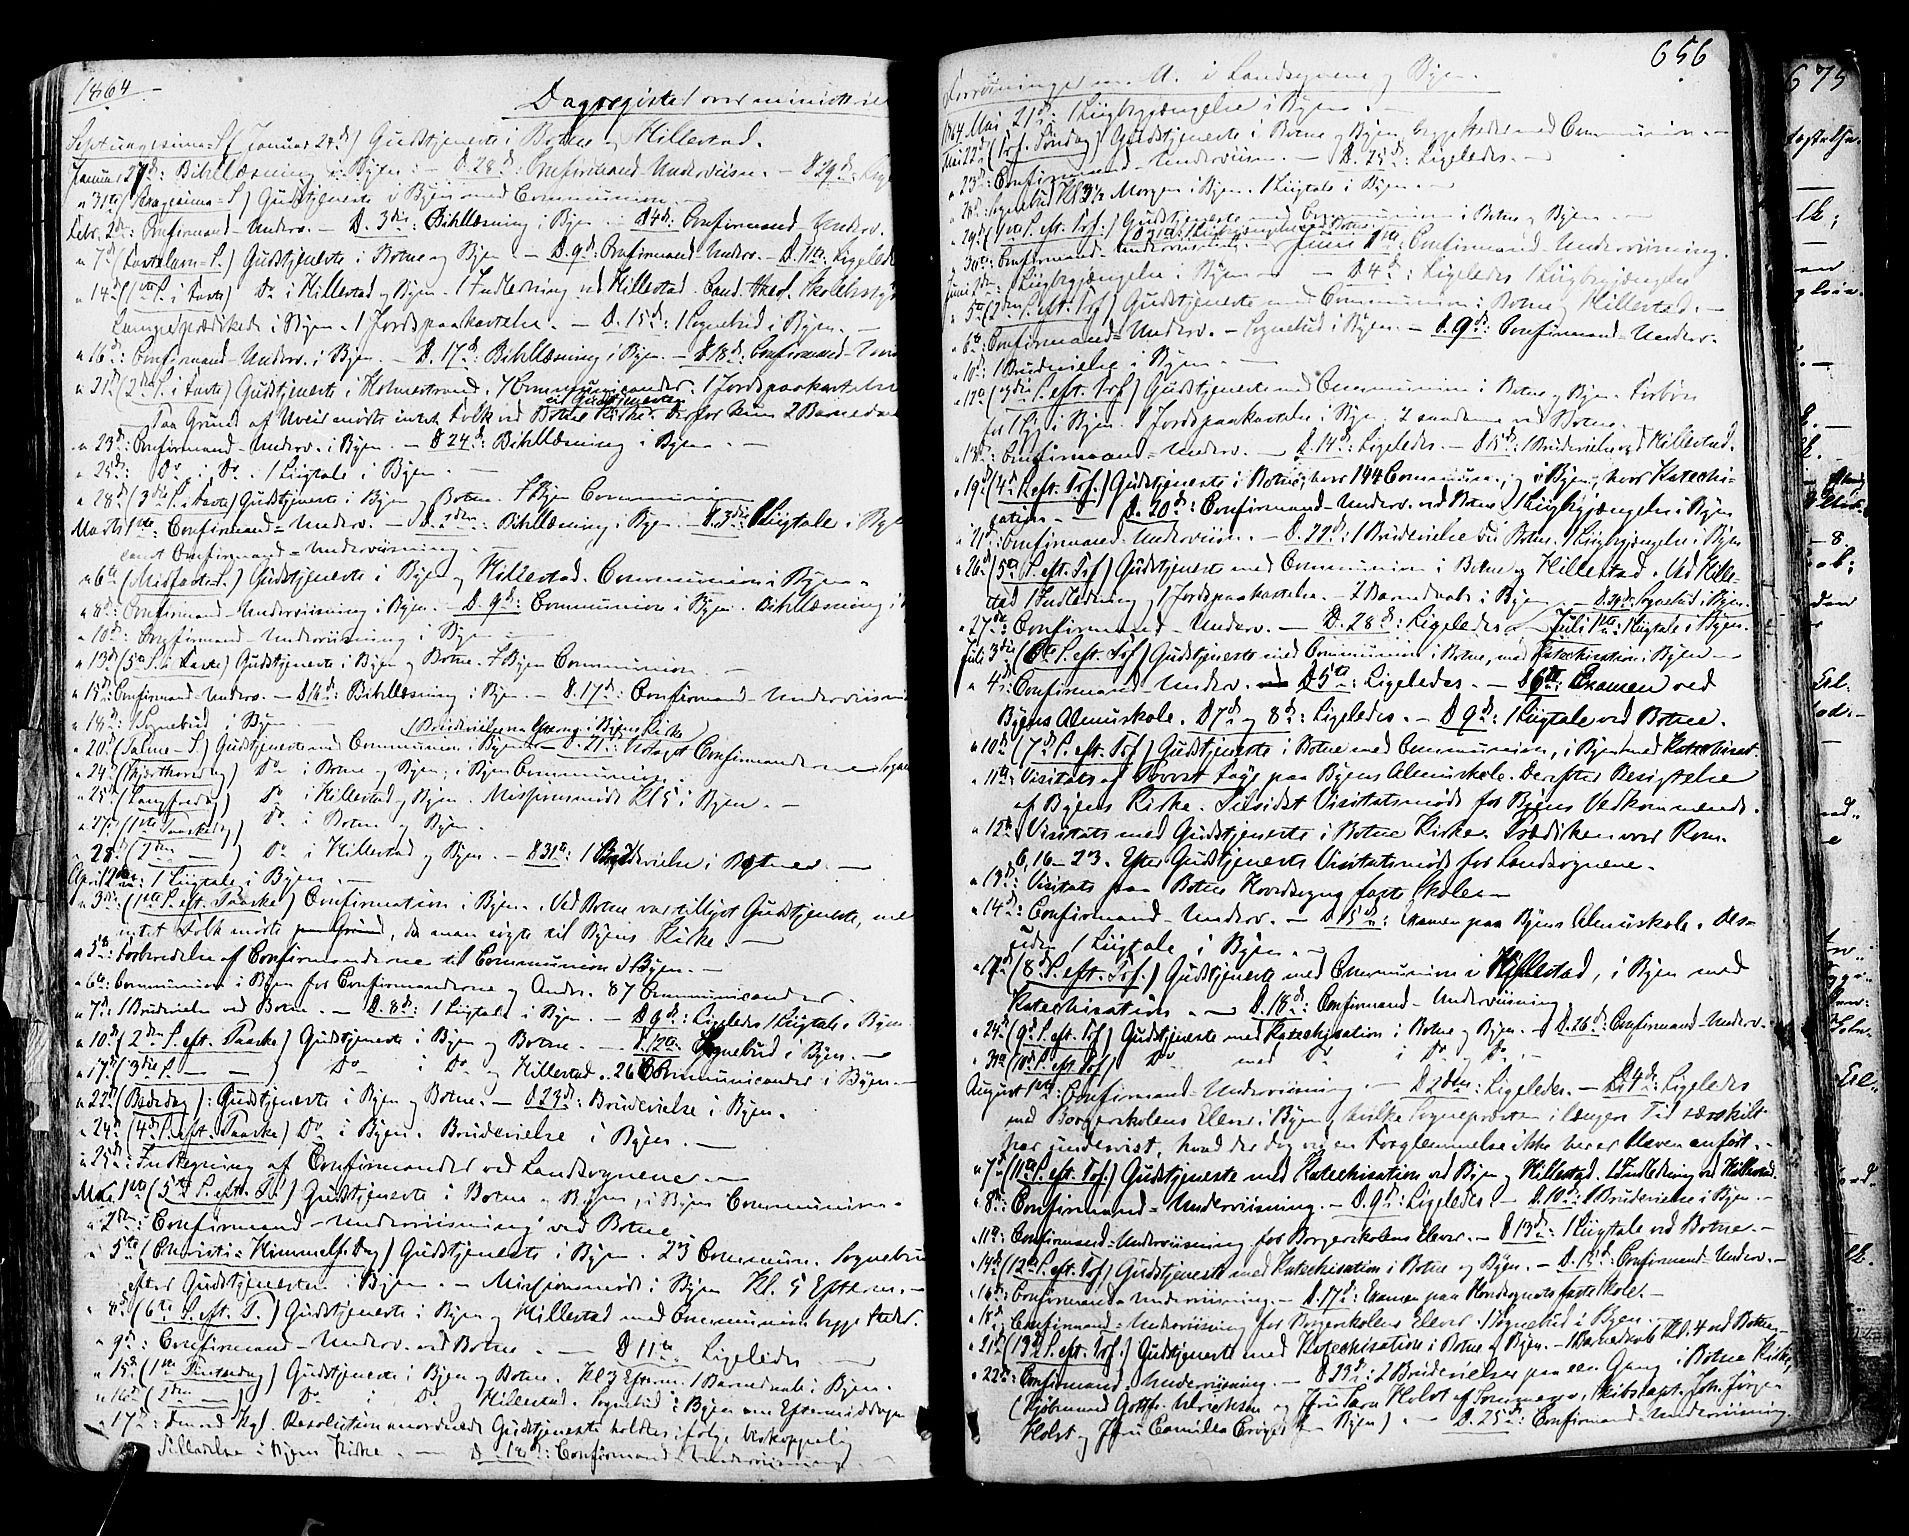 1864
Dagregister over ministeriel
Septuagesima S. (Januar 24d) Gudstjeneste i Botne og Hillestad.
Januar 27d: Bibellæsning i Byen. – D. 28d: Confirmand-Underviisn. – D 29d:
" 31te (Sexagesima-S.) Gudstjeneste i Byen med Communion.
Febr. 2den: Confirmand-Underv. – D. 3die: Bibellæsning i Byen. – D 4d: Confirmand-Underv.
" 7d (Fastelavn-S.) Gudstjeneste i Botne og Byen. – D. 9d: Confirmand-Underv. – D. 11te: Ligeledes
" 14d (1ste S. i Faste) Do i Hillestad og Byen. 1 Indledning ved Hillestad. Cand. theol. Skolebestyr
Lange prædikede i Byen. 1 Jordspaakastelse. – D. 15d: 1 Sognebud i Byen. –
" 16d: Confirmand-Underv. i Byen. – D. 17d: Bibellæsning i Byen. – D 18d: Confirmand-Und
" 21d (2den S. i Faste) Gudstjeneste i Holmestrand. 7 Communicanter. 1 Jordspaakastelse
til Gudstjenesten
Paa Grund af Uveir mødte intet Folk ved Botne Kirke. Derfor kun 2 Barnedaab
" 23d: Confirmand-Underv. i Byen. – D 24d: Bibellæsning i Byen. –
" 25d: Do i Do. 1 Liigtale i Byen. –
" 28d (3die S. i Faste) Gudstjeneste i Byen og Botne. I Byen Communion.
Marts 1ste: Confirmand-Underv. – D. 2den: Bibellæsning i Byen. – D. 3die: 1 Liigtale i Byen
samt Confirmand-Underviisning. –
" 6te (Midfaste S.) Gudstjeneste i Byen og Hillestad. Communion i Byen. –
" 8d: Confirmand-Underviisning i Byen. – D. 9d: Communion i Byen. Bibellæsning i
" 10d: Confirmand-Underviisning i Byen –
" 13d (5te S. i Faste) Gudstjeneste i Byen og Botne. I Byen Communion. –
" 15d: Confirmand-Underv. – D 16d: Bibellæsning i Byen. – D. 17d: Confirmand-Underviisning
" 18d: 1 Sognebud i Byen. –
" 20d (Palme-S.) Gudstjeneste med Communion i Byen. – D. 21d: Confirmanderne
" 24d (Skjærthorsdag) Do i Botne og Byen; i Byen Communion.
" 25d (Langfredag) Do i Hillestad og Byen. Missionsmøde Kl 5 i Byen. –
" 27d (1ste Paaskedag) Do i Botne og Byen.
28d (2den – ) Do i Hillestad og Byen. – D 31te: 1 Brudevielse i Botne. –
April 1ste: 1 Liigtale i Byen. –
" 3die (1ste S. eft. Paaske) Confirmation i Byen. Ved Botne var tillyst Gudstjeneste, men
intet Folk mødte, da man søgte til Byens Kirke. –
" 5te: Forberedelse af Confirmanderne til Communion i Byen. –
" 6te: Communion i Byen for Confirmanderne og Andre. 87 Communicanter.
" 7d: 1 Brudevielse ved Botne. – D. 8d: 1 Liigtale i Byen. – D 9d: Ligeledes 1 Liigtale i Byen.
" 10d (2den S. eft. Paaske) Gudstjeneste i Byen og Botne. – D. 12te: Sognebud i Byen. –
" 17d (3die S. – – ) Do i Do og Hillestad. 26 Communicanter i Byen. –
" 22d (Bededag): Gudstjeneste i Byen og Botne. – D 23d: Brudevielse i Byen.
" 24d (4d S. eft. Paaske) Do i Byen. Brudevielse i Byen. –
" 25d: Indtegning af Confirmander ved Landsognene –
Mai 1ste (5te S. eft. P.) Gudstjeneste i Botne og Byen, i Byen Communion.
" 2den: Confirmand-Underviisning ved Botne.
" 5te (Christi-Himmelf. Dag) Gudstjeneste i Byen. 23 Commun. Sognebud
efter Gudstjenesten i Byen. – Missionsmøde i Byen Kl. 5 Efterm. –
" 8d (6te S. eft. P.) Gudstjeneste i Byen og Hillestad med Communion begge Steder.
" 9d: Confirmand-Underv. ved Botne. – D 11te: Ligeledes –
" 15d (1ste Pintsedag) Gudstjeneste i Byen og Botne. Kl 3 Efterm. 1 Barnedaab i Byen.
" 16d (2den – ) Do i Do og Hillestad. Sognebud i Byen om Eftermiddagen
" 17d: Den ved Kgl. Resolution anordnede Gudstjeneste holdtes ifølge biskoppelig
Tilladelse i Byens Kirke. – D 18d: Confirmand-Underviisning. –
656
Forretninger m. A. i Landsognene og Byen.
1864 Mai 21d: 1 Liigbegjængelse i Byen. –
Mai 22d (Tref. Søndag) Gudstjeneste i Botne og Byen, begge Steder med Communion. –
" 23d: Confirmand-Underviisn. – D. 25d: Ligeledes. –
" 26d: Sognebud Kl 3½ Morgen i Byen. 1 Liigtale i Byen. –
" 29d (1ste S. eft. Tref.) Gudstjeneste med Communion i Botne og Byen. –
" 30te: Confirmand-Underviisning. – Juni 1ste: Confirmand-Underviisning.
Juni 2den: Liigbegjængelse i Byen. – – D 4d: Ligeledes 1 Liigbegjængelse
" 5te (2den S. eft. Tref.) Gudstjeneste med Communion i Botne og Hillestad. –
" 6te: Confirmand-Underv. – Sognebud i Byen. – D. 9d: Confirmand-Underv.
" 10d: 1 Brudevielse i Byen. –
" 12te (3die S. eft. Tref.) Gudstjeneste med Communion i Botne og Byen. Forbøn
for 1 Syg i Byen. 1 Jordspaakastelse i Byen. 2 saadanne ved Botne.
" 13d: Confirmand-Underv. – D. 14d: Ligeledes. – D 15d: 1 Brudevielse ved Hillestad.
" 19d (4d S. eft. Tref.) Gudstjeneste i Botne, hvor 144 Commun., og i Byen, hvor Katechi-
sation. – D. 20de: Confirmand-Underv. ved Botne. 1 Liigbegjængelse i Byen
" 21d: Confirmand-Underviisn. – D. 22d: 1 Brudevielse ved Botne. 1 Liigbegjængelse i Byen
" 26d (5te S. eft. Tref.) Gudstjeneste med Communion i Botne og Hillestad. Ved Hille-
stad 1 Indledning og 1 Jordspaakastelse. – 2 Barnedaab i Byen. – D. 29d: Sognebud i Byen.
" 27d: Confirmand-Underv. – D. 28d: Ligeledes. – Juli 1ste: 1 Liigtale i Byen.
Juli 3die (6te S. eft. Tref.) Gudstjeneste med Communion i Botne, med Katechisation i Byen –
" 4d: Confirmand-Underv. D 5te: Ligeledes. – D 6te: Examen ved
Byens Almuskole. D 7d og 8d: Ligeledes. – D 9d: 1 Liigtale ved Botne.
" 10d (7d S. eft. Tref.) Gudstjeneste i Botne med Communion, i Byen med Katechisat.
" 11te: Visitats af Provst Lage paa Byens Almuskole. Derefter Besigtelse
af Byens Kirke. Tilsidst Visitatsmøde for Byens Vedkommende.
" 12te: Visitats med Gudstjeneste i Botne Kirke. Prædiken over Rom.
6, 16–23. Efter Gudstjenesten Visitatsmøde for Landsognene.
" 13d: Visitats paa Botne Hovedsogns faste Skole –
" 14d: Confirmand-Underv. – D. 15d: Examen paa Byens Almuskole. Des-
uden 1 Liigtale i Byen. –
" 17d (8d S. eft. Tref.) Gudstjeneste med Communion i Hillestad, i Byen med
Katechisation. – D. 18d: Confirmand-Underviisning
" 24d (9d S. eft. Tref.) Gudstjeneste med Katechisation i Botne og Byen. – D. 26d: Confirmand-Underv.
" 31te (10d S. eft. Tref.) Do med Do i Do og Do. –
August 1ste: Confirmand-Underviisning. – D 2den: Ligeledes. – D. 4d: Ligeledes
med Borgerskolens Elever i Byen, hvilke Sognepræsten i længere Tid særskilt
har undervist, hvad der dog ved en Forglemmelse ikke her er bleven anført. –
" 7d (11te S. eft. Tref.) Gudstjeneste med Katechisation ved Byen og Hillestad. 1 Indledning ved Hillestad.
" 8d: Confirmand-Underviisning. – D. 9d: Ligeledes – D. 10d: 1 Brudevielse i Byen. –
" 11te: Confirmand-Underviisning for Borgerskolens Elever. – D 13d: 1 Liigtale ved Botne. –
" 14d (12te S. eft. Tref.) Gudstjeneste med Katechisation i Botne og Byen. – D. 15d: Confirmand-Underv. –
" 16d: Confirmand-Underviisning. – D. 17d: Examen paa Hovedsognets faste Skole. –
" 18d: Confirmand-Underviisning for Borgerskolens Elever. 1 Sognebud i Byen.
" 21d (13d S. eft. Tref.) Gudstjeneste med Katechisation i Botne og Byen. – 1 Barnedaab Kl. 4 ved Botne. –
" 22d: Confirmand-Underviisning. – D 23d: 2 Brudevielser paa een Gang i Botne Kirke,
(Kjøbmand Gottfr. Ulrichsen og Frk. Sara Holst af Skibscapt. Joh. Jørgen
Holst og Frk. Camilla Byen). – D. 25d: Confirmand-Underviisning.
675